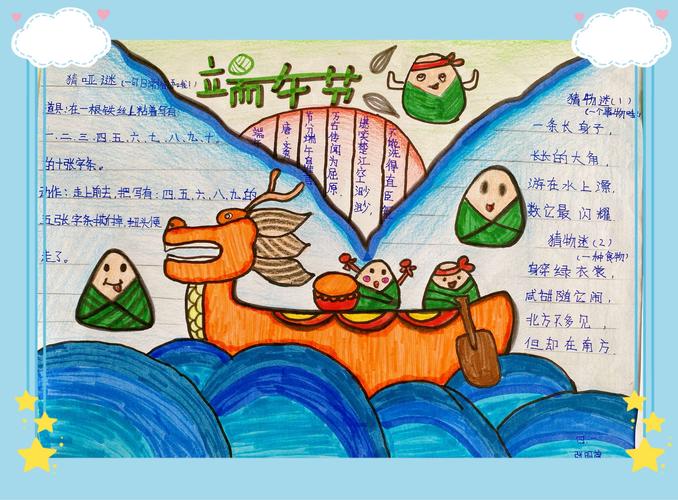 端午节
猜哑迷
道具:在一根铁丝上粘着写有:
一.二.三.四.五.六.七.八.九.十.
的十张字条。
动作:走上前去,把写有:四.五.六.八.九.的
五张字条摘掉,扭头便
走了。
端
唐:文
节分端午自谁
万古传闻为屈原,
堪笑楚江空渺渺,
不能洗得直臣
猜物迷(1)
一条长身子,
长长的大角,
游在水上漂,
数它最闪耀
猜物迷(2)
(一种食物)
身穿绿衣裳,
咸甜随它闹,
北方不多见,
但却在南方.
四.